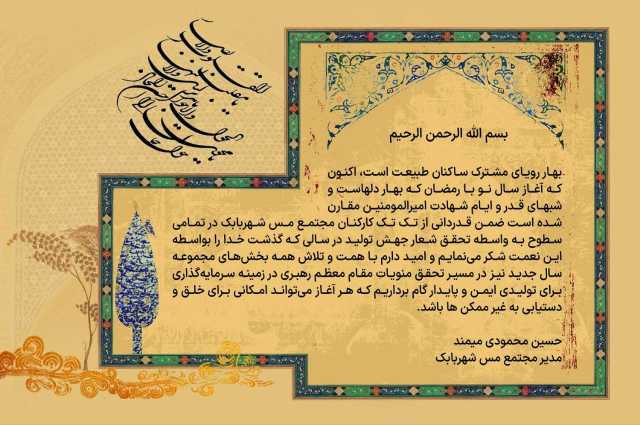 بسم الله الرحمن الرحیم
بهار رویای مشترک ساکنان طبیعت است، اکنون
که آغاز سال نو با رمضان که بهار دلهاست و
شبهای قدر و ایام شهادت امیرالمومنین مقارن
شده است ضمن قدردانی از تک تک کارکنان مجتمع مس شهربابک در تمامی
سطوح به واسطه تحقق شعار جهش تولید در سالی که گذشت خدا را بواسطه
این نعمت شکر می‌نمایم و امید دارم با همت و تلاش همه بخش‌های مجموعه
سال جدید نیز در مسیر تحقق منویات مقام معظم رهبری در زمینه سرمایه‌گذاری
برای تولیدی ایمن و پایدار گام برداریم که هر آغاز می‌تواند امکانی برای خلق و
دستیابی به غیر ممکن ها باشد.
حسین محمودی میمند
مدیر مجتمع مس شهربابک